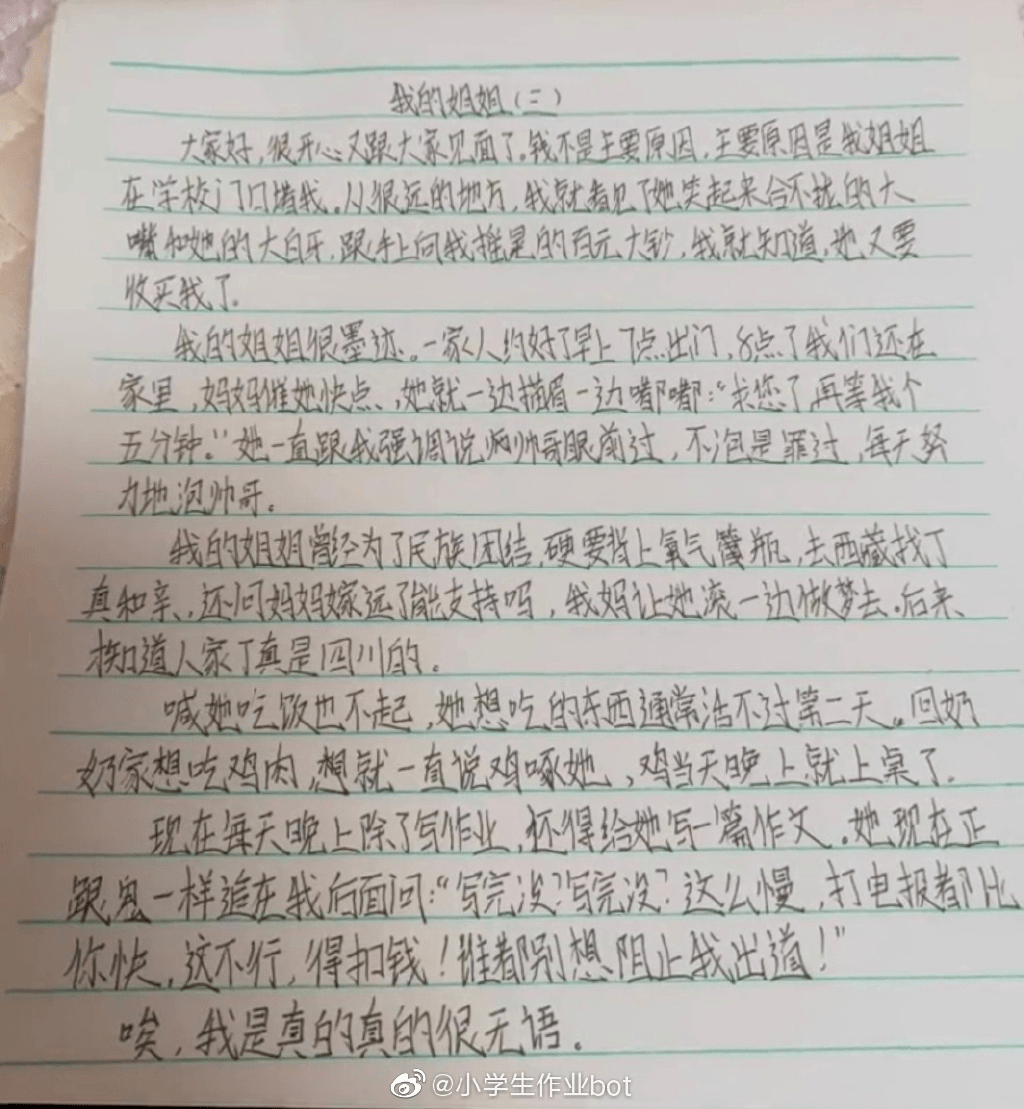 我的姐姐(三)
大家好,很开心又跟大家见面了。我不是主要原因,主要原因是我姐姐
在学校门口堵我。从很远的地方,我就看见了她笑起来合不拢的大
嘴和她的大白牙,跟手上向我摇晃的百元大钞,我就知道,她又要
收买我了.
我的姐姐很墨迹。一家人约好了早上7点出门,8点了我们还在
家里,妈妈催她快点,她就一边描眉一边嘟嘟:“求您了,再等我个
五分钟。”她一直跟我强调说帅哥眼前过,不泡是罪过,每天努
力地泡帅哥。
我的姐姐曾经为了民族团结,硬要背上氧气瓶,去西藏找丁
真和亲,还问妈妈嫁远了能支持吗,我妈让她滚一边做梦去.后来
才知道人家丁真是四川的。
喊她吃饭也不起,她想吃的东西通常活不过第二天。回奶
奶家想吃鸡肉,想就一直说鸡啄她,鸡当天晚上就上桌了.
现在每天晚上除了写作业,还得给她写一篇作文。她现在正
跟鬼一样追在我后面问:“写完没?写完没?这么慢,打电报都比
你快,这不行,得扣钱!谁都别想阻止我出道!”
唉,我是真的真的很无语。
@小学生作业bot